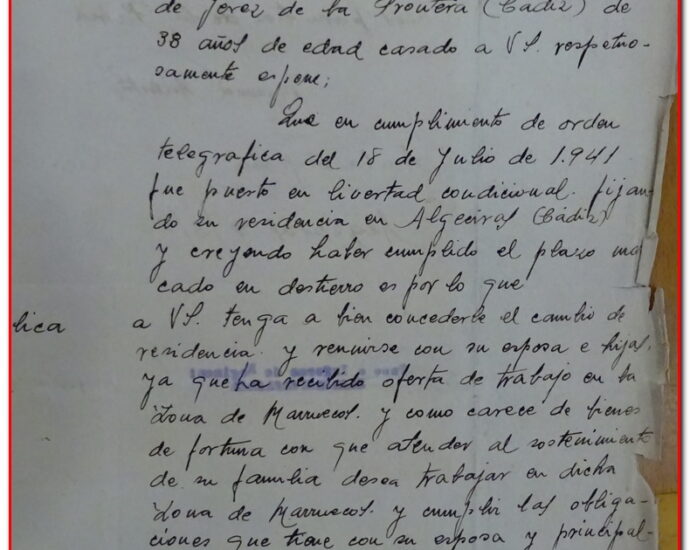 de Jerez de la Frontera (Cádiz) de
38 años de edad casado a VS. respetuo-
samente expone;
Que en cumplimiento de orden
telegrafica del 18 de Julio de 1.941
fue puesto en livertad condicional. fijan-
do su residencia en Algeciras (Cádiz)
y creyendo haber cumplido el plazo mar
cado en destierro es por lo que
lica a VS. tenga a bien concederle el cambio de
residencia. y reunirse con su esposa e hijas,
ya que ha recibido oferta de trabajo en la
Zona de Marruecos. y como carece de bienes
de fortuna con que atender al sostenimiento
de su familia desea trabajar en dicha
Zona de Marruecos. y cumplir las obliga-
ciones que tiene con su esposa y principal-